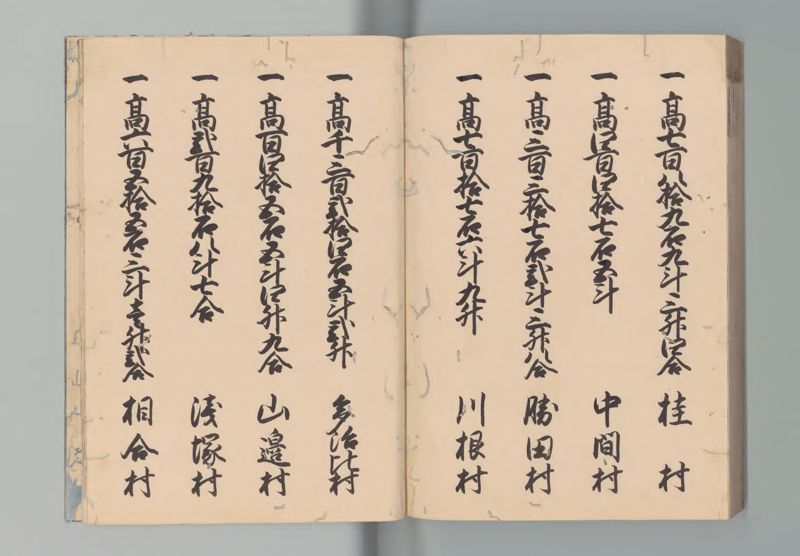 一 高七百八拾九石九斗三升四合 桂村
一 高四百四拾七石五斗 中間村
一 高三百三拾七石弐斗三升八合 勝田村
一 高七百拾七石六斗九升 川根村
一 高千三百弐拾四石五斗弐升 多治比村
一 高百四拾五石五斗四升九合 山邉村
一 高弐百九拾石八斗七合 浅塚村
一 高六百五拾五石三斗壱升弐合 相合村